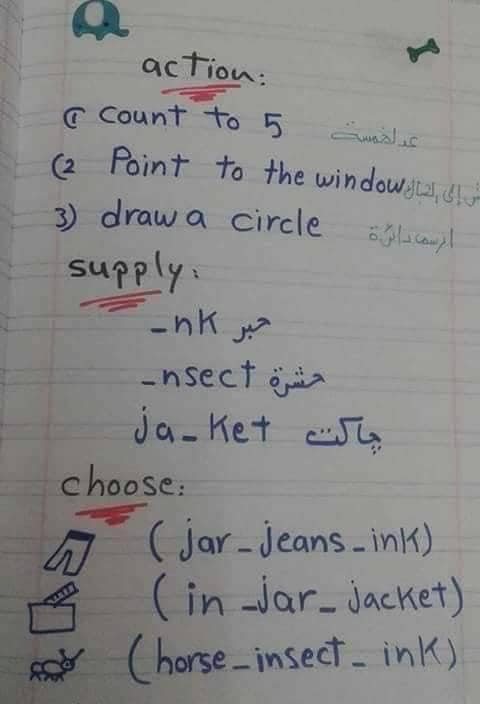 action:
(1 count to 5 عد لخمسة
(2 Point to the window إلى الشباك
3) draw a circle ارسم دائرة
supply:
_nk حبر
_nsect حشرة
ja_ket چاكت
choose:
(jar_jeans_ink)
(in_jar_jacket)
(horse_insect_ink)